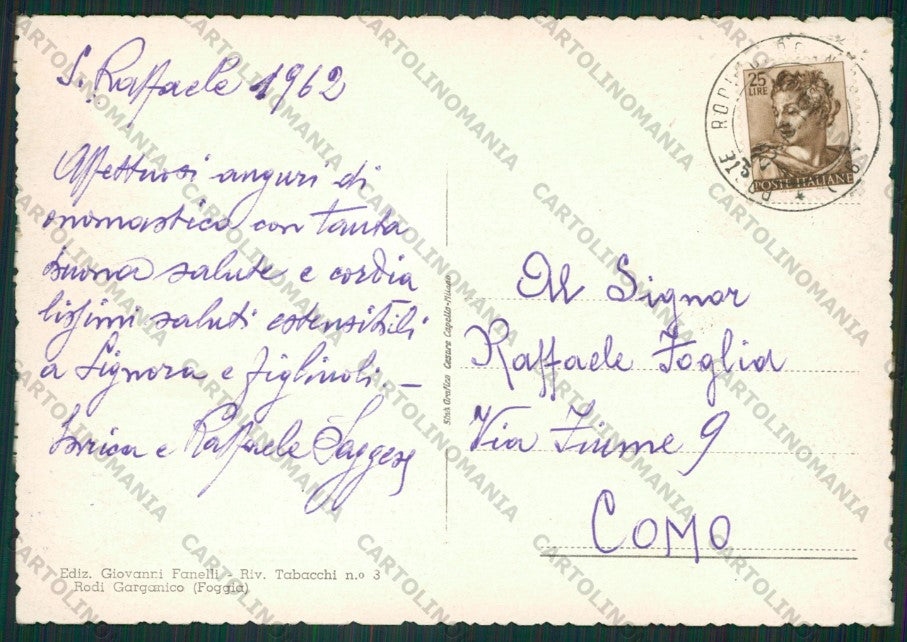 S. Raffaele 1962
Affettuosi auguri di
onomastico con tanta
buona salute e cordia
lissimi saluti estensibili
a Signora e figliuoli. —
Enrica e Raffaele Saggese
25
LIRE
POSTE ITALIANE
Al Signor
Raffaele Foglia
Via Fiume 9
COMO
Stab. Grafico Cesare Capello - Milano
Ediz. Giovanni Fanelli - Riv. Tabacchi n.o 3
Rodi Garganico (Foggia)
CARTOLINOMANIA